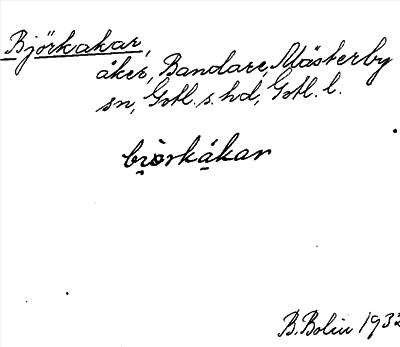 Björkakar,
åker, Bandare, Mästerby
sn, Gotl. s. hd, Gotl. l.
bi̯òrká̱kar
B. Bolin 193